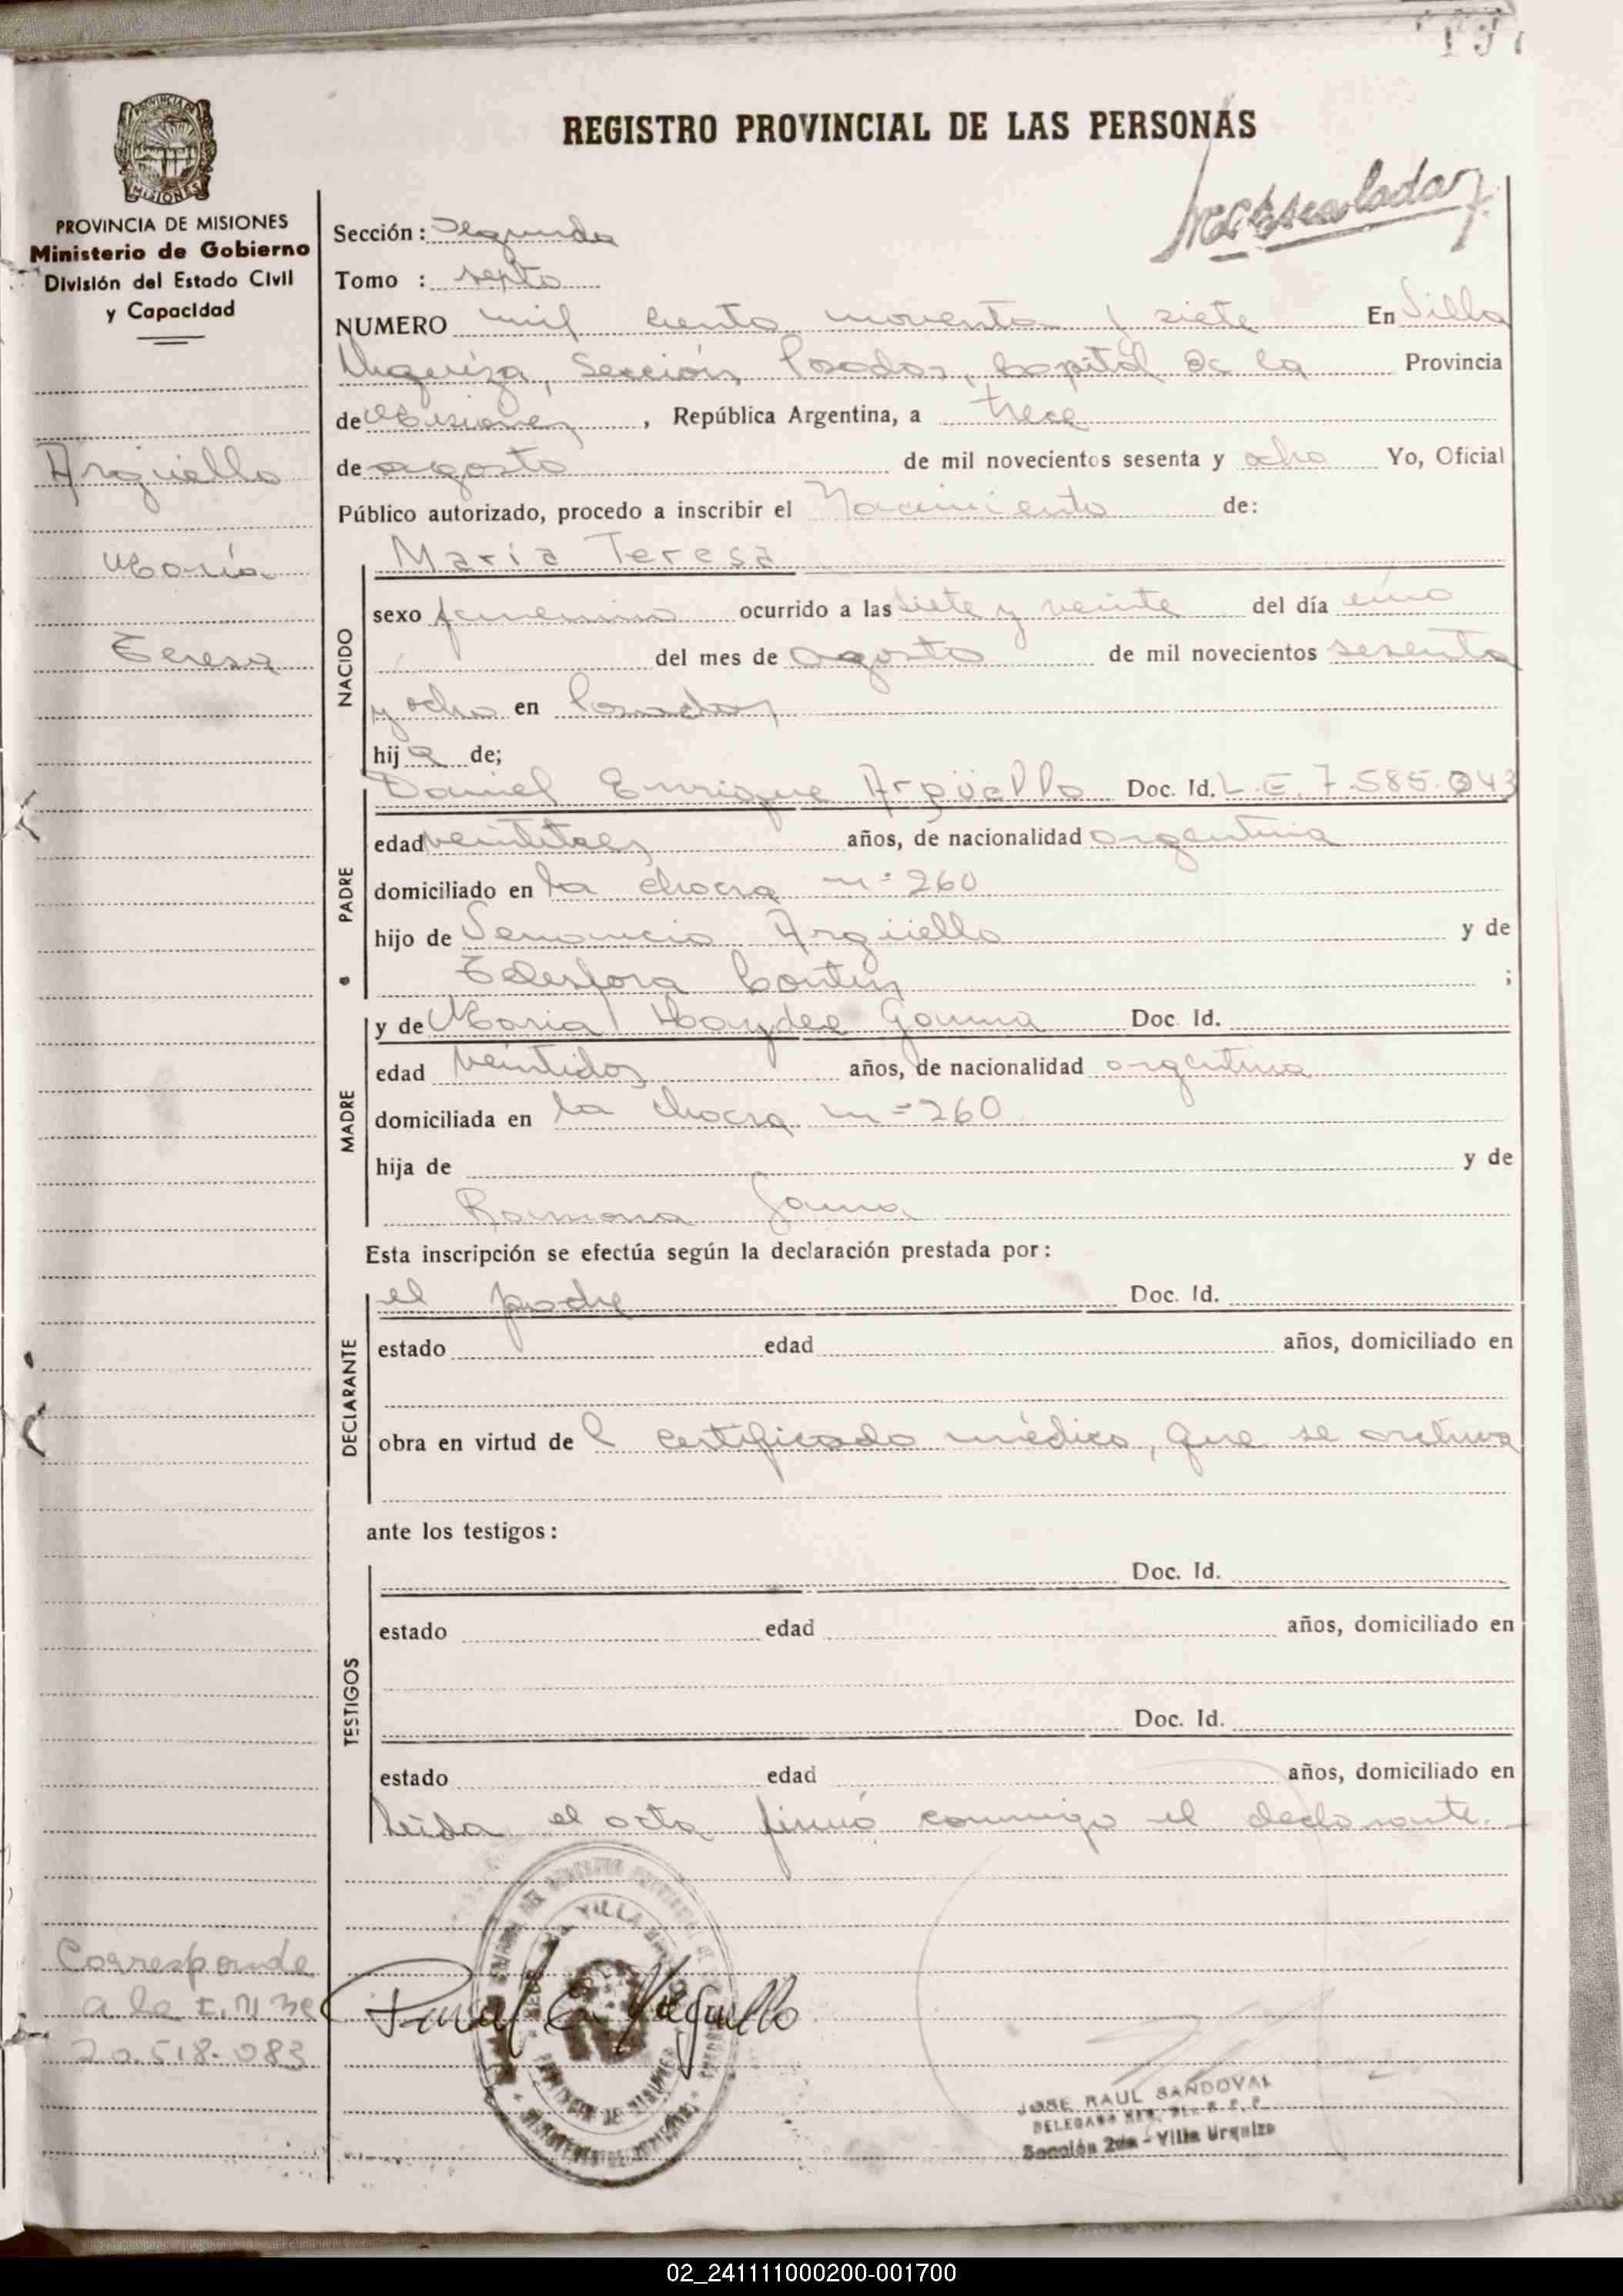 197
REGISTRO PROVINCIAL DE LAS PERSONAS
PROVINCIA DE MISIONES
Ministerio de Gobierno
División del Estado Civil
y Capacidad
Argüello
María
Teresa
Sección: Segunda
Tomo : septo
NUMERO mil ciento noventa y siete En Villa
Urquiza, Sección Posadas, Capital de la Provincia
de Misiones, República Argentina, a trece
de agosto de mil novecientos sesenta y ocho Yo, Oficial
Público autorizado, procedo a inscribir el Nacimiento de:
NACIDO
María Teresa
sexo femenino ocurrido a las siete y veinte del día uno
del mes de agosto de mil novecientos sesenta
y ocho en Posadas
hija de;
PADRE
Daniel Enrique Argüello Doc. Id. L.E. 7.585.043
edad veintitres años, de nacionalidad argentina
domiciliado en la chacra nº 260
hijo de Venancio Argüello y de
Telesfora ;
MADRE
y de María Haydee Gauna Doc. Id.
edad veintidos años, de nacionalidad argentina
domiciliada en la chacra nº 260
hija de y de
Ramona Gauna
Esta inscripción se efectúa según la declaración prestada por:
DECLARANTE
el padre Doc. Id.
estado edad años, domiciliado en
obra en virtud del certificado médico, que se archiva
ante los testigos:
TESTIGOS
Doc. Id.
estado edad años, domiciliado en
Doc. Id.
estado edad años, domiciliado en
leída el acta firmó conmigo el declarante.
Corresponde
a la
20.518.083
VILLA
PROVINCIA DE MISIONES
JOSE RAUL SANDOVAL
DELEGADO
Sección 2da - Villa Urquiza
02_241111000200-001700